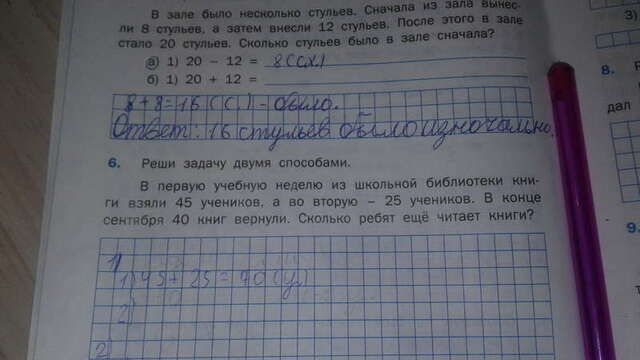 В зале было несколько стульев. Сначала из зала вынес-
ли 8 стульев, а затем внесли 12 стульев. После этого в зале
стало 20 стульев. Сколько стульев было в зале сначала?
а) 1) 20 – 12 = 8
б) 1) 20 + 12 =
8+8=16 (С.) - было.
Ответ: 16 стульев было изначально.
6. Реши задачу двумя способами.
В первую учебную неделю из школьной библиотеки кни-
ги взяли 45 учеников, а во вторую – 25 учеников. В конце
сентября 40 книг вернули. Сколько ребят ещё читает книги?
1)
1) 45 + 25 = 70 (у.)
2)
2)
3)
8.
дал
9.